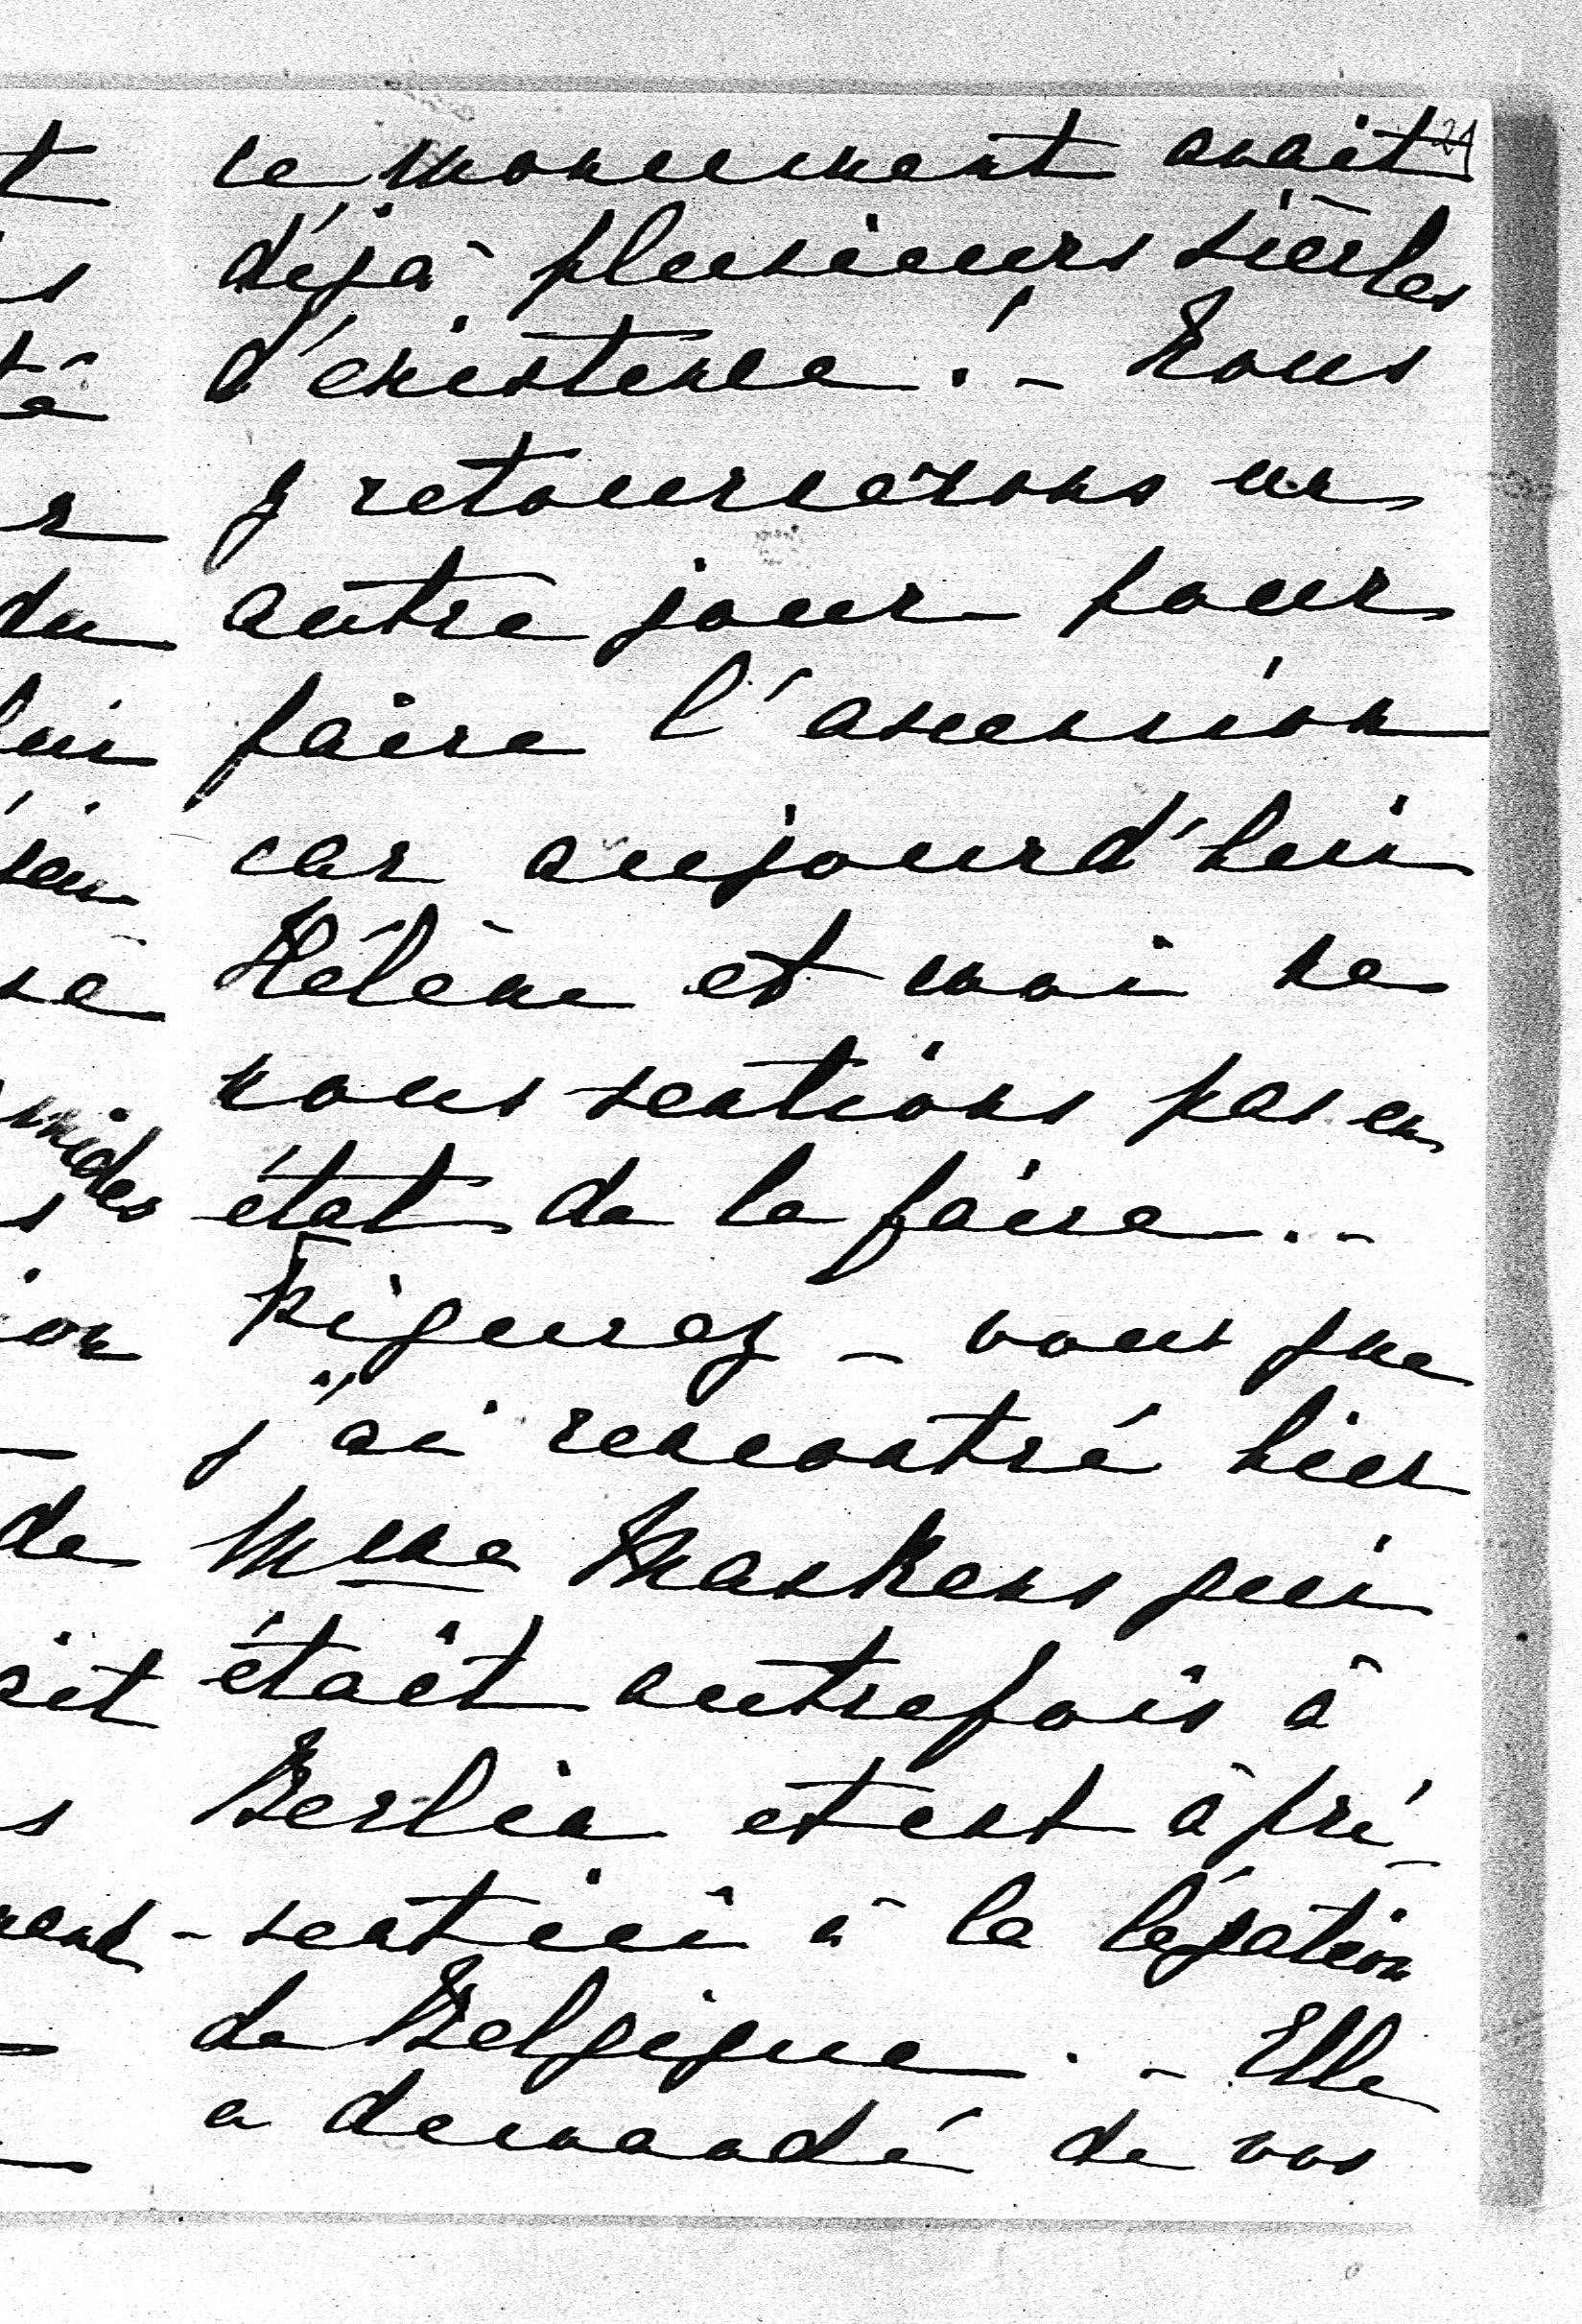 21
ce monument avait
déjà plusieurs siècles
d'existence.- Nous
y retournerons un
autre jour pour
faire l'ascension
car aujourd'hui
Hélène et moi ne
nous sentions pas en
état de la faire.-
Figurez-vous que
j'ai rencontré hier
Mme Maskens qui
était autrefois à
Berlin et est à pré-
-sent ici à la légation
de Belgique.- Elle
a demandé de vos